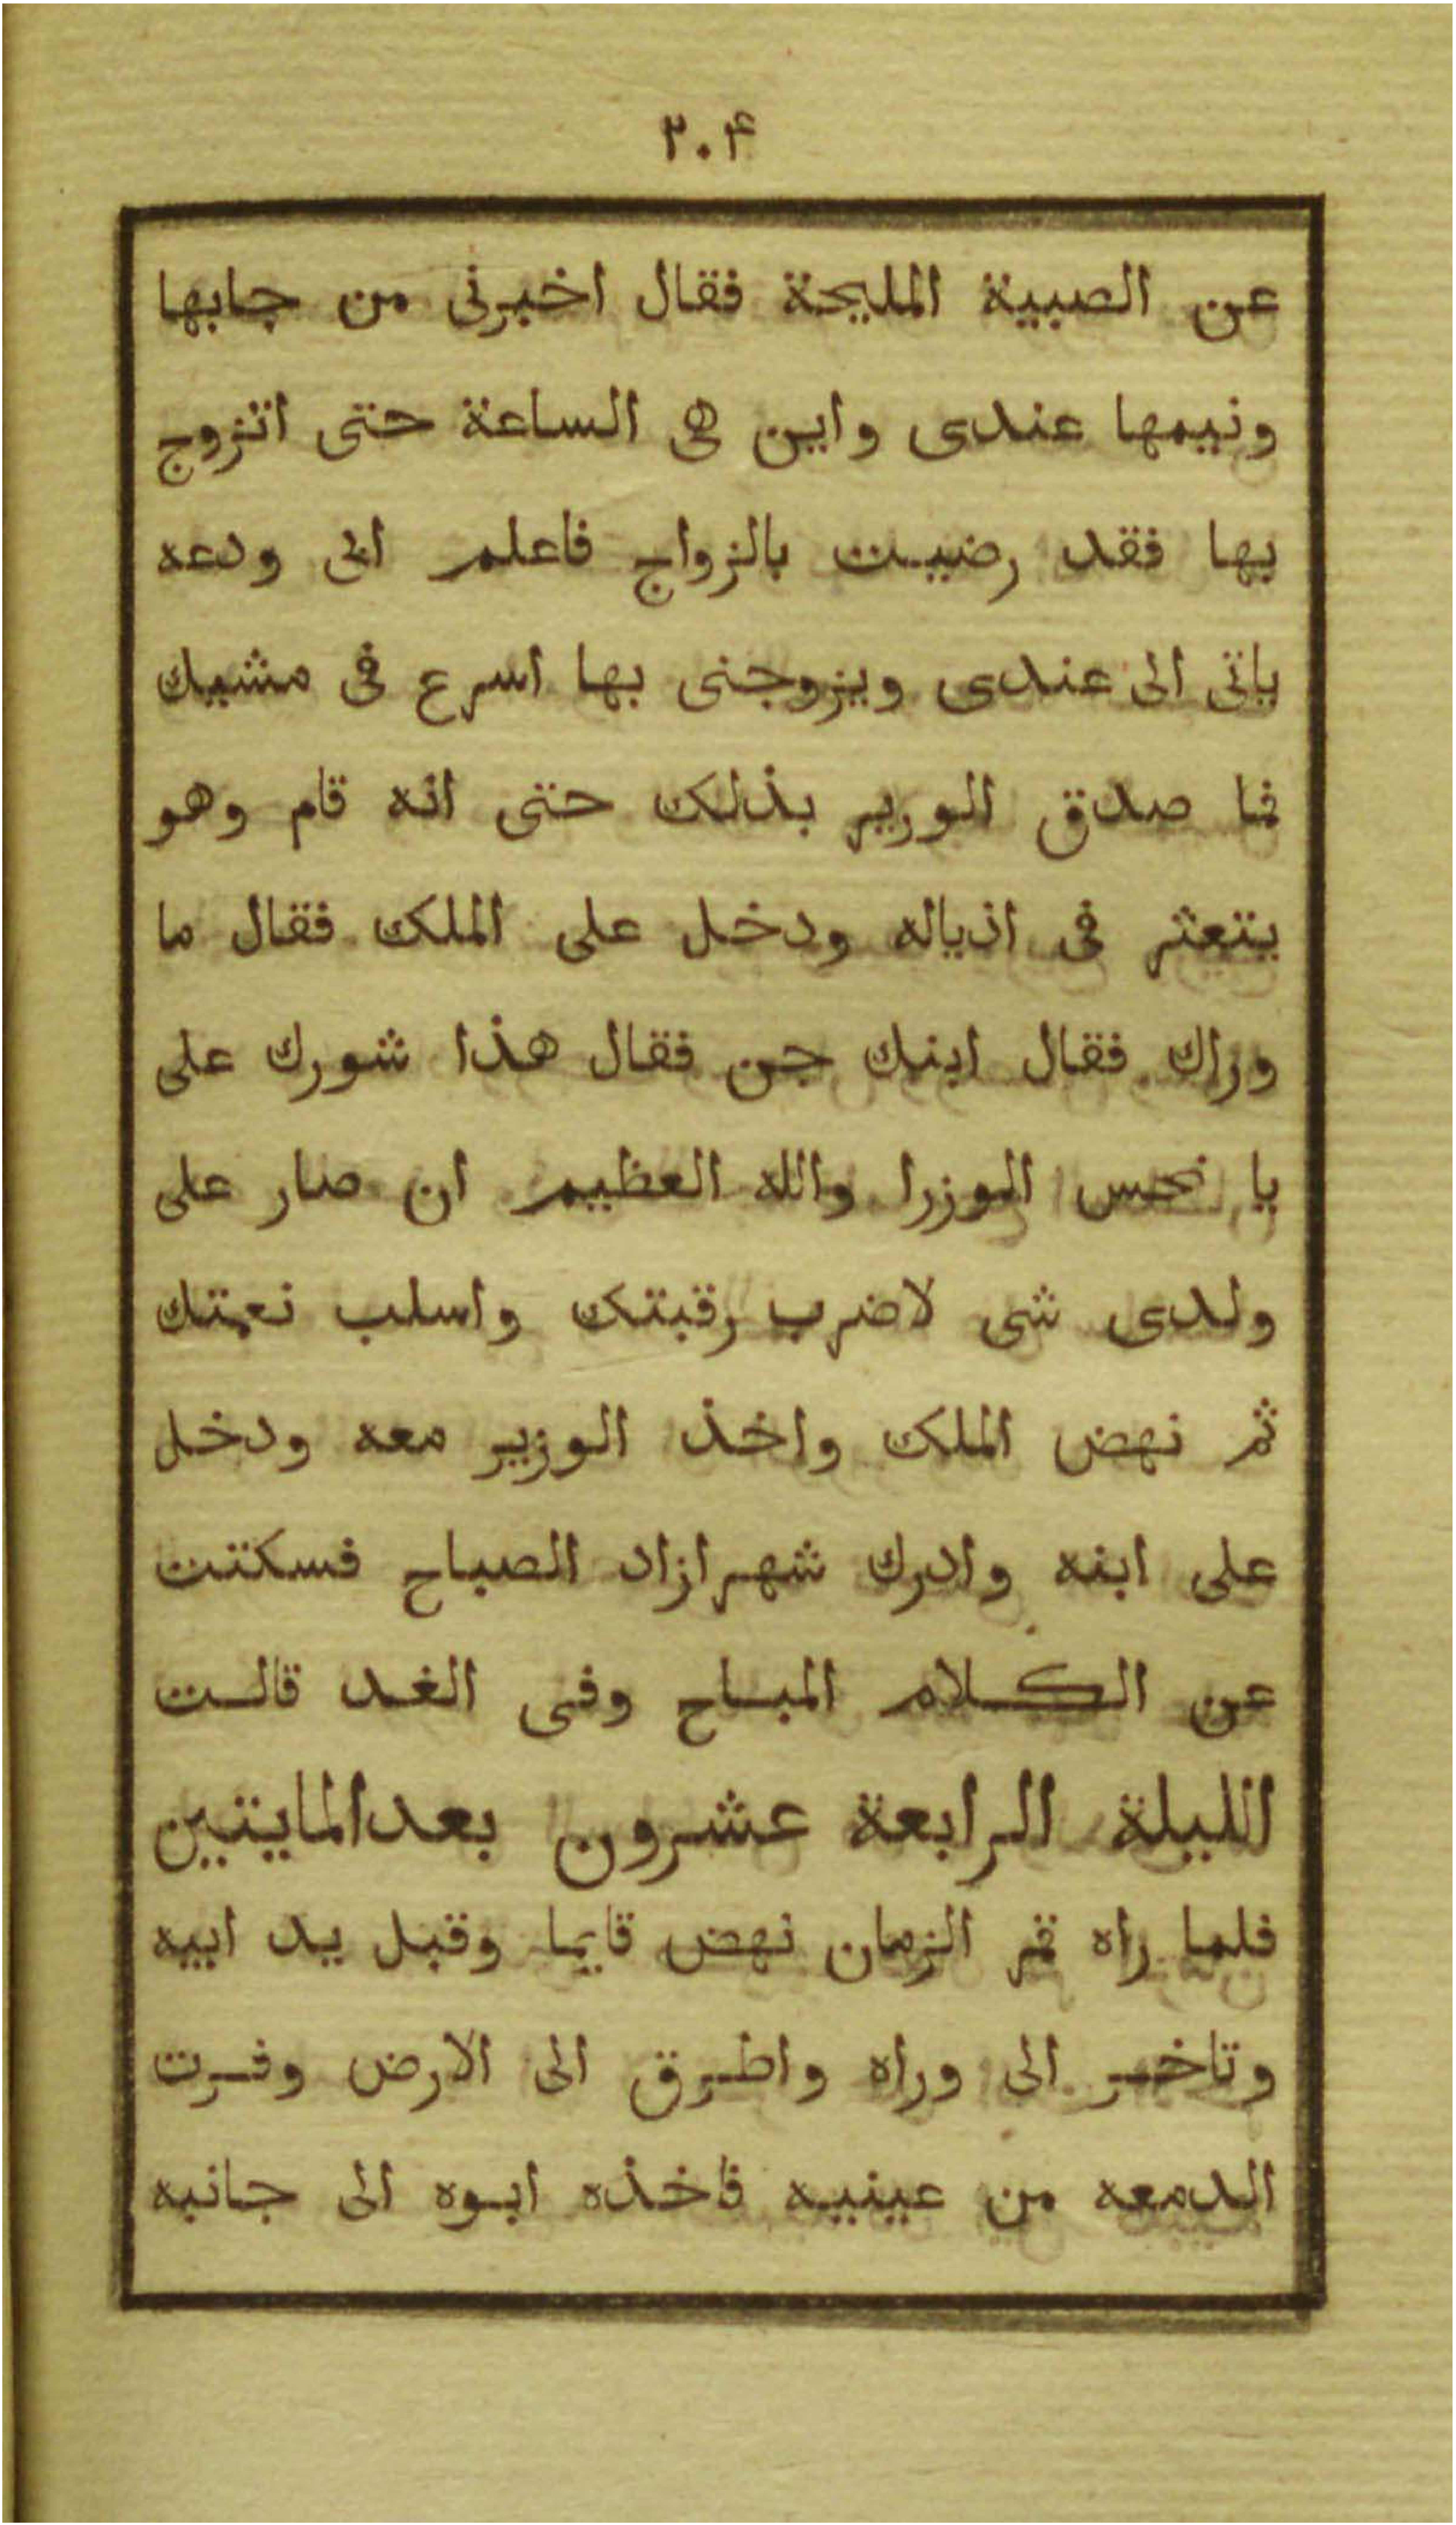 ٢٠۴
عن الصبية المليحة فقال اخبرنى من جابها
ونيمها عندى واين هى الساعة حتى اتزوج
بها فقد رضيت بالزواج فاعلم ابى ودعه
ياتى الى عندى ويزوجنى بها اسرع فى مشيك
فما صدق الورير بذلك حتى انه قام وهو
يتعثر فى اذياله ودخل على الملك فقال ما
وراك فقال ابنك جن فقال هذا شورك على
يا نحس الوزرا والله العظيم ان صار على
ولدى شى لاضرب رقبتك واسلب نعمتك
ثم نهض الملك واخذ الوزير معه ودخل
على ابنه وادرك شهرازاد الصباح فسكتت
عن الكلام المباح وفى الغد قالت
الليلة الرابعة عشرون بعدالمايتين
فلما راه قمر الزمان نهض قايما وقبل يد ابيه
وتاخر الى وراه واطرق الى الارض وفرت
الدمعه من عينيه فاخذه ابوه الى جانبه